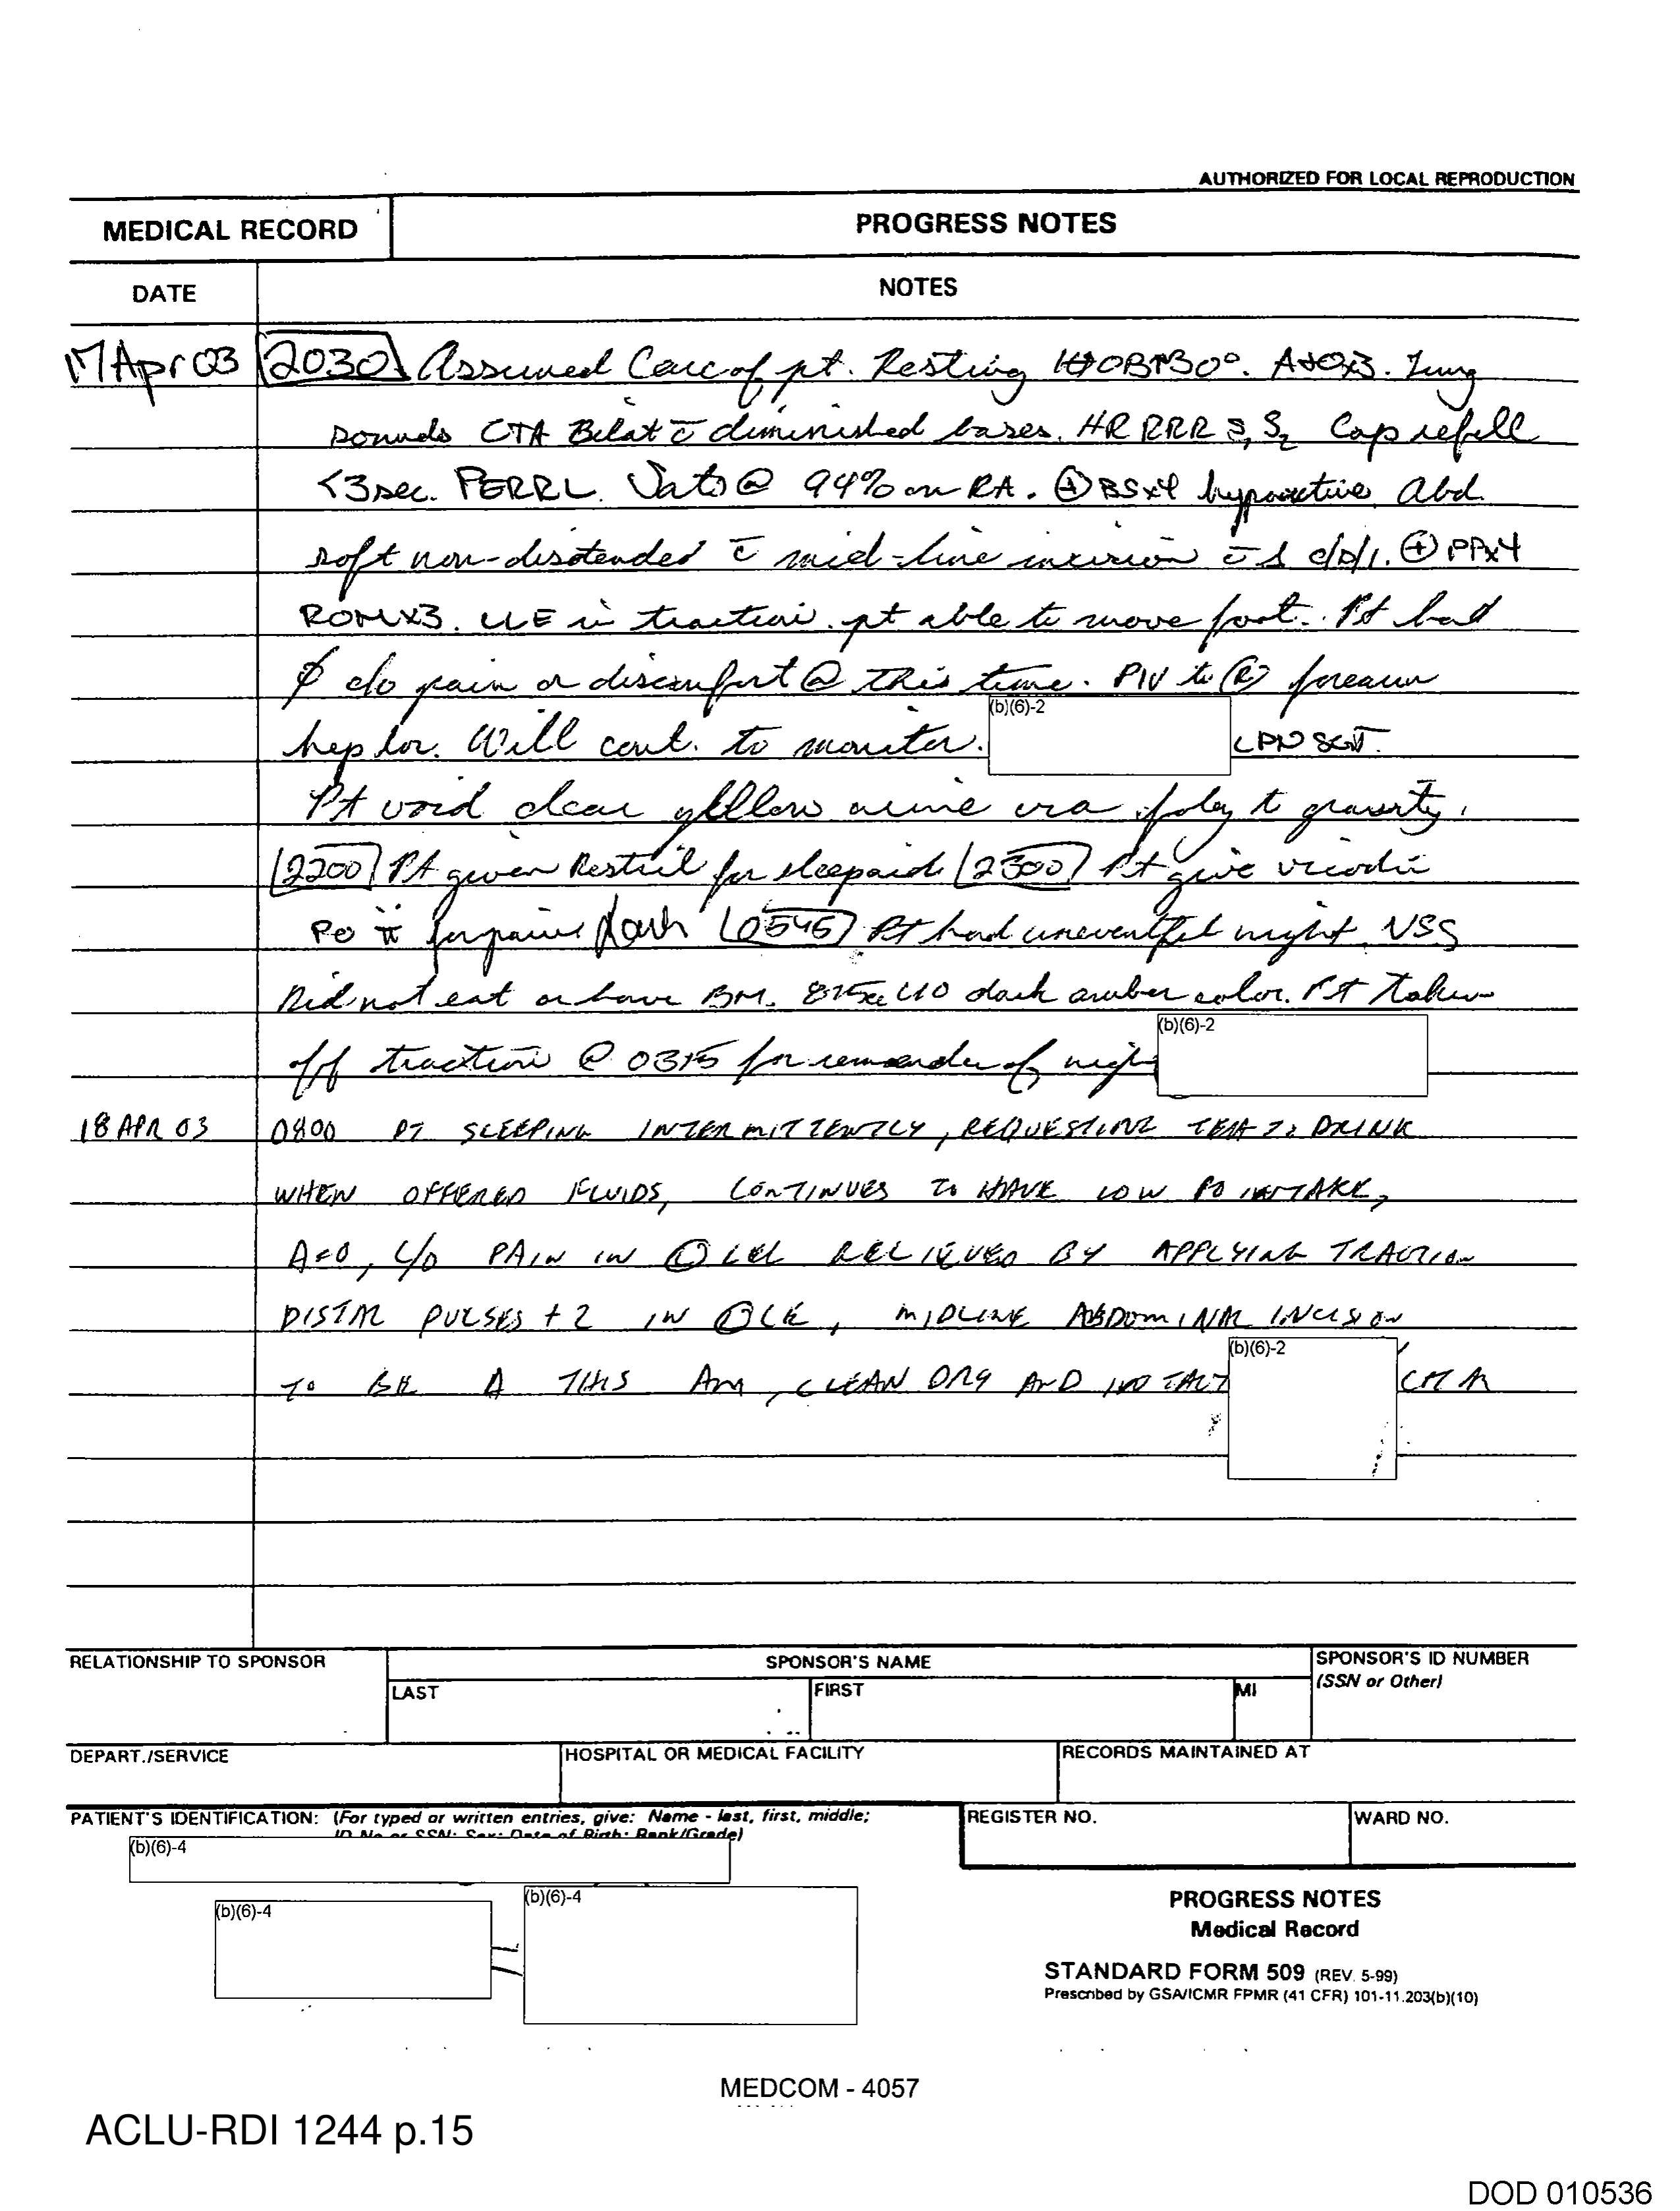 AUTHORIZED FOR LOCAL REPRODUCTION
MEDICAL RECORD
PROGRESS NOTES
DATE
NOTES
17 Apr 03 2030 Assumed Care of pt. Resting HOB↑30°. A+Ox3. Lung
sounds CTA Bilat c̄ diminished bases. HR RRR S, S2 Cap refill
<3sec. PERRL. Sats @ 94% on RA. ⊕ BSx4 hypoactive Abd
soft non-disotended c̄ mid-line incision c̄ d/d/i. ⊕ PPx4
ROMx3. LLE in traction. pt able to move foot. Pt had
∅ c/o pain or discomfort @ this time. PIV to (R) forearm
hep loc. Will cont. to monitor. (b)(6)-2 LPN SGT
Pt void clear yellow urine via foley to gravity.
2200 Pt given Restril for sleepaid 2300 Pt give vicodin
PO ii for pain 0545 Pt had uneventful night. VSS
Did not eat or have BM. 875cc UO dark amber color. Pt Taken
off traction @ 0315 for remander of nigh (b)(6)-2
18 APR 03 0800 PT SLEEPING INTERMITTENTLY, REQUESTING TEA TO DRINK
WHEN OFFERED FLUIDS, CONTINUES TO HAVE LOW PO INTAKE,
A+O, C/O PAIN IN Ⓛ LEL RELIEVED BY APPLYING TRACTION
DISTAL PULSES +2 IN Ⓛ LE, MIDLINE ABDOMINAL INCISION
TO BE Δ THIS AM, CLEAN DRY AND INTACT (b)(6)-2
RELATIONSHIP TO SPONSOR
SPONSOR'S NAME
SPONSOR'S ID NUMBER
(SSN or Other)
LAST
FIRST
MI
DEPART./SERVICE
HOSPITAL OR MEDICAL FACILITY
RECORDS MAINTAINED AT
PATIENT'S IDENTIFICATION: (For typed or written entries, give: Name - last, first, middle;
ID No or SSN; Sex; Date of Birth; Rank/Grade)
REGISTER NO.
WARD NO.
(b)(6)-4
(b)(6)-4
(b)(6)-4
PROGRESS NOTES
Medical Record
STANDARD FORM 509 (REV. 5-99)
Prescribed by GSA/ICMR FPMR (41 CFR) 101-11.203(b)(10)
MEDCOM - 4057
ACLU-RDI 1244 p.15
DOD 010536